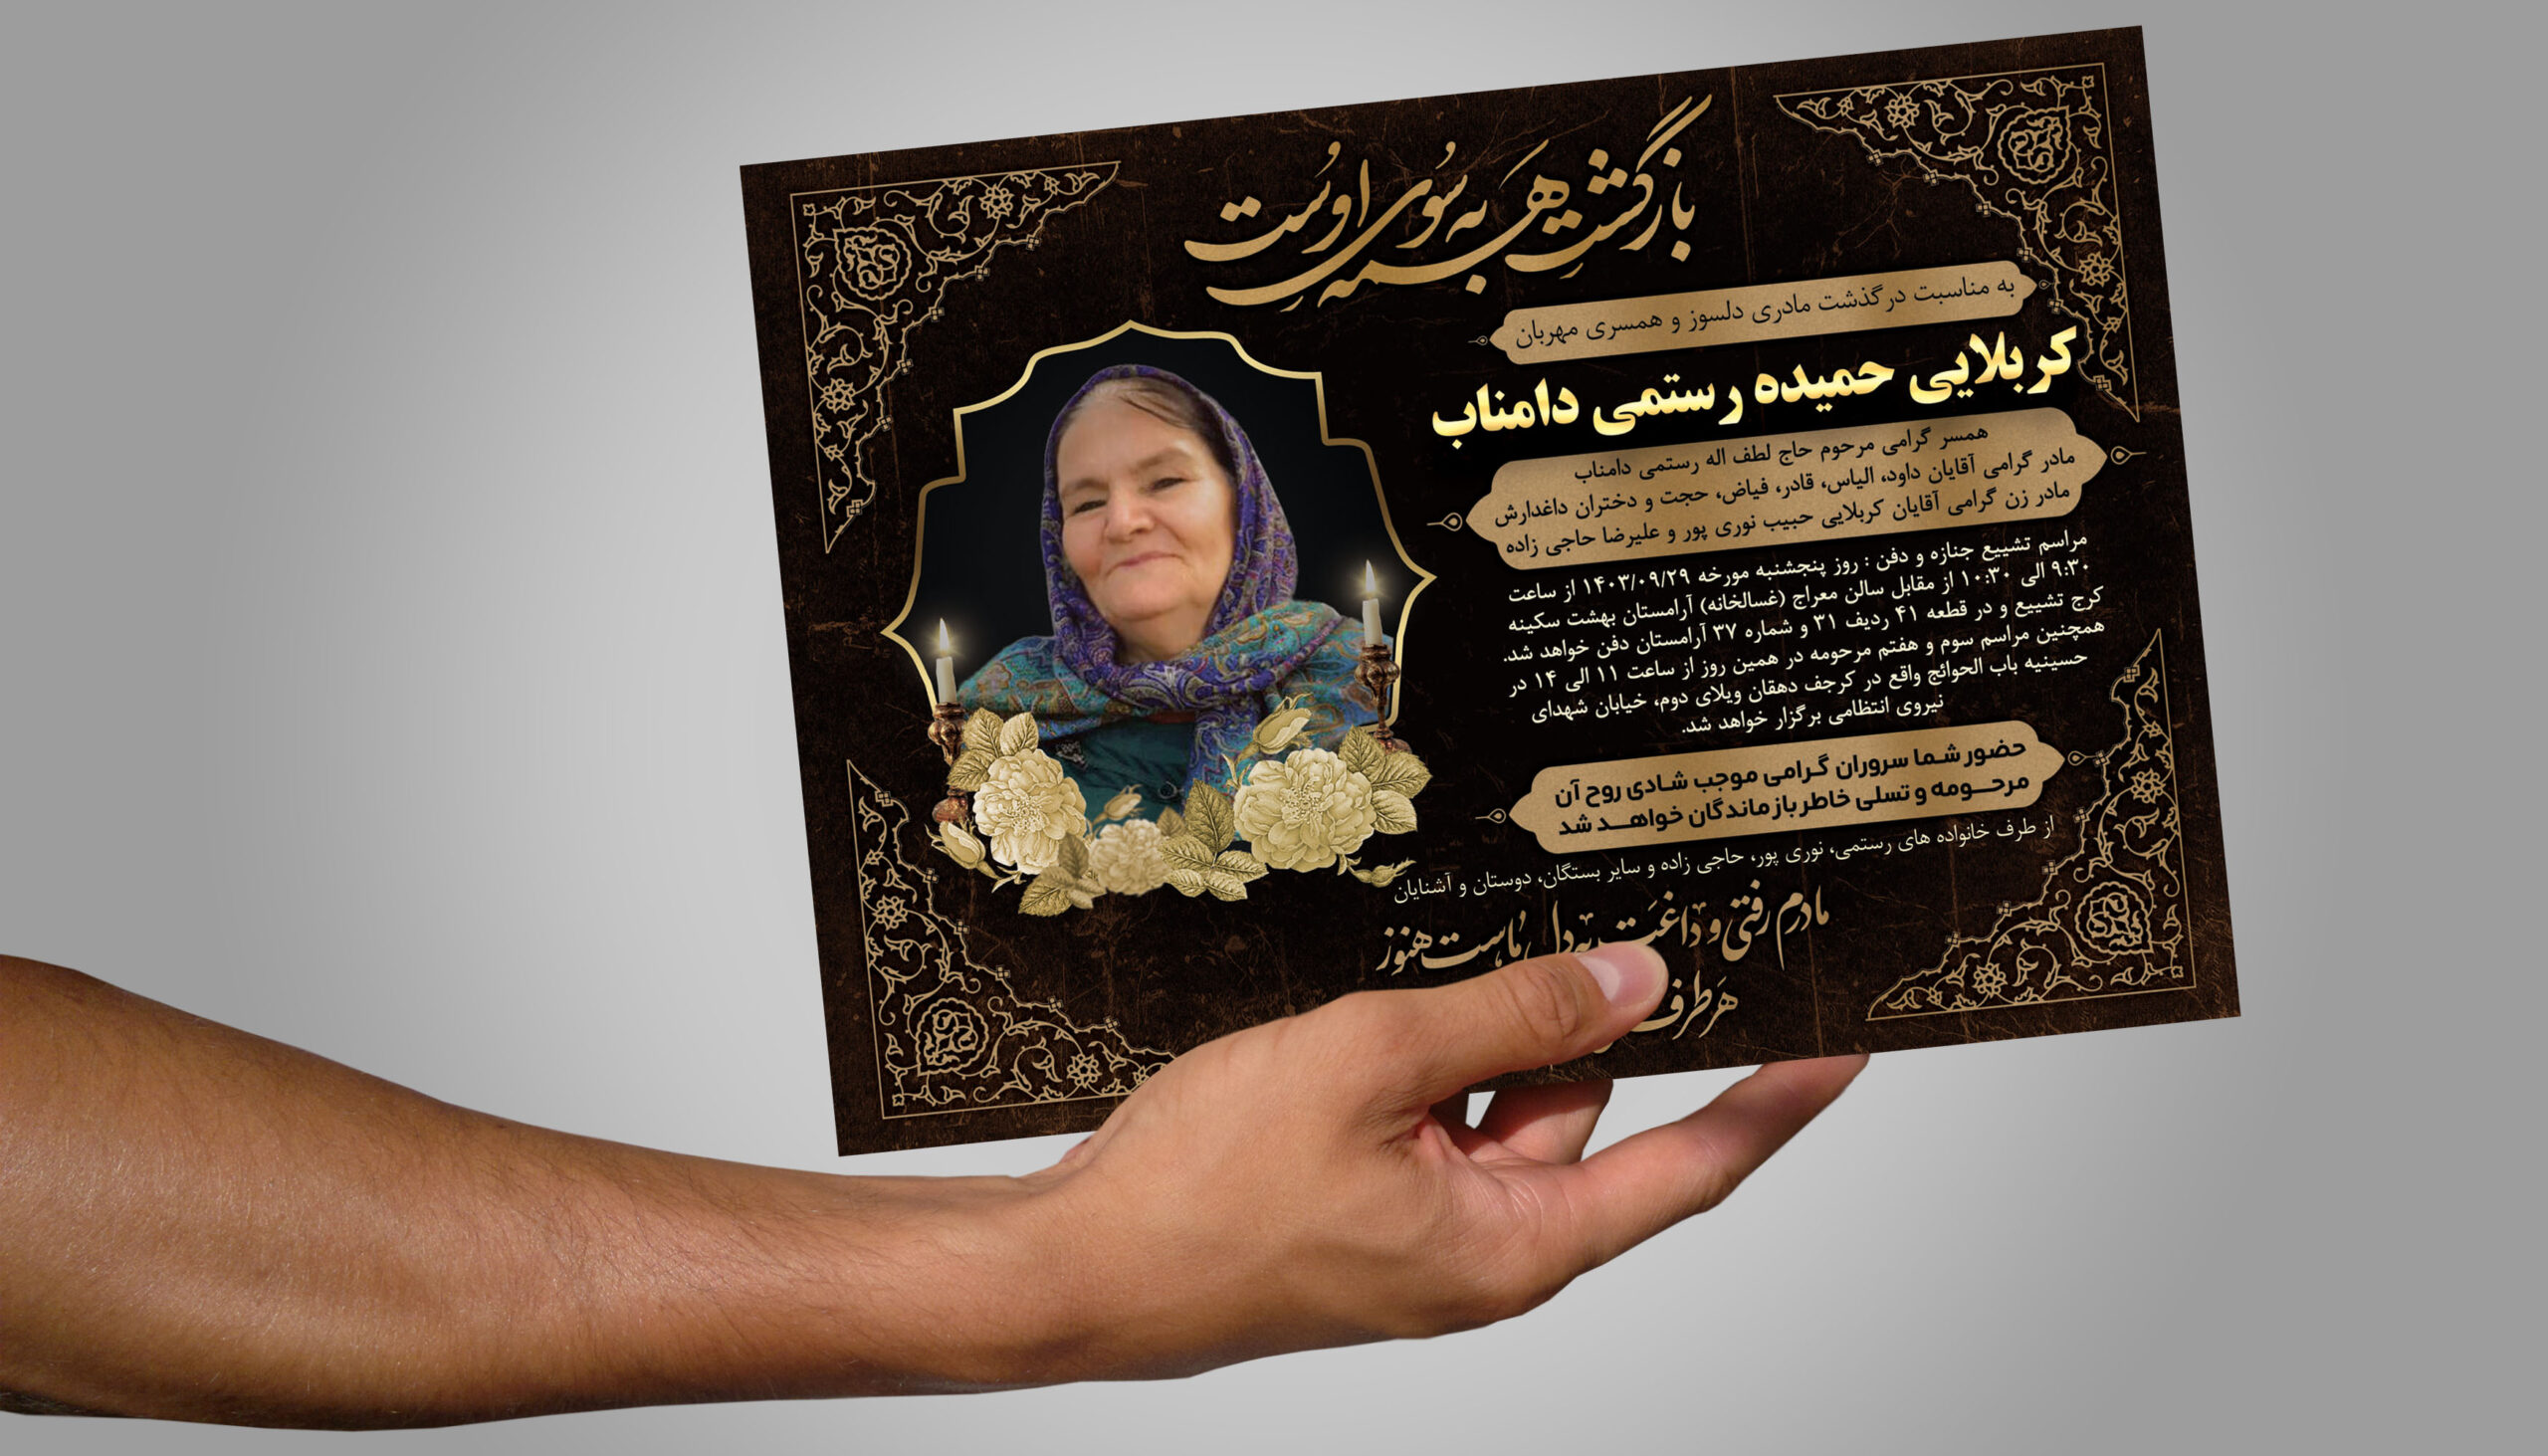 بازگشت همه به سوی اوست
به مناسبت درگذشت مادری دلسوز و همسری مهربان
کربلایی حمیده رستمی دامناب
همسر گرامی مرحوم حاج لطف اله رستمی دامناب
مادر گرامی آقایان داود، الیاس، قادر، فیاض، حجت و دختران داغدارش
مادر زن گرامی آقایان کربلایی حبیب نوری پور و علیرضا حاجی زاده
مراسم تشییع جنازه و دفن : روز پنجشنبه مورخه ۱۴۰۳/۰۹/۲۹ از ساعت
۹:۳۰ الی ۱۰:۳۰ از مقابل سالن معراج (غسالخانه) آرامستان بهشت سکینه
کرج تشییع و در قطعه ۴۱ ردیف ۳۱ و شماره ۳۷ آرامستان دفن خواهد شد.
همچنین مراسم سوم و هفتم مرحومه در همین روز از ساعت ۱۱ الی ۱۴ در
حسینیه باب الحوائج واقع در کرجف دهقان ویلای دوم، خیابان شهدای
نیروی انتظامی برگزار خواهد شد.
حضور شما سروران گرامی موجب شادی روح آن
مرحومه و تسلی خاطر بازماندگان خواهد شد
از طرف خانواده های رستمی، نوری پور، حاجی زاده و سایر بستگان، دوستان و آشنایان
مادرم رفتی و داغت به دل ماست هنوز
هر طرف